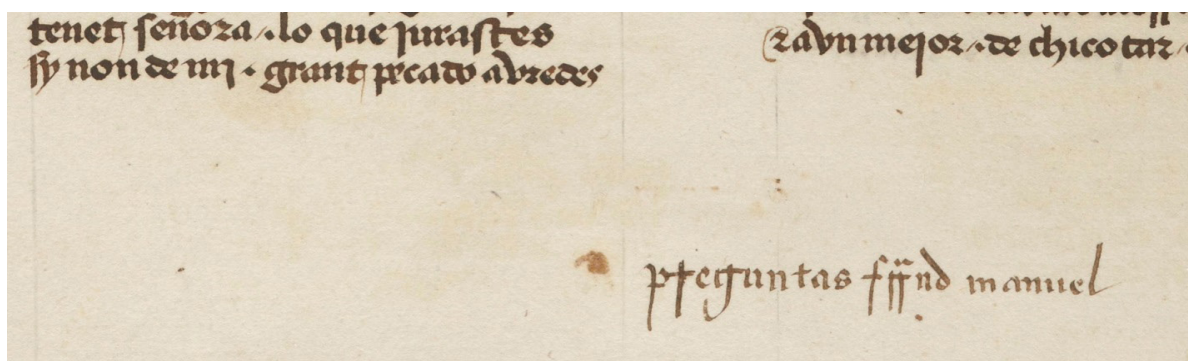 tenet señora ⁄. lo que jurastes
sy non de mj . grant pecado avredes
⁊ avn mejor ⁄. de chico tar
preguntas ffrnd manuel